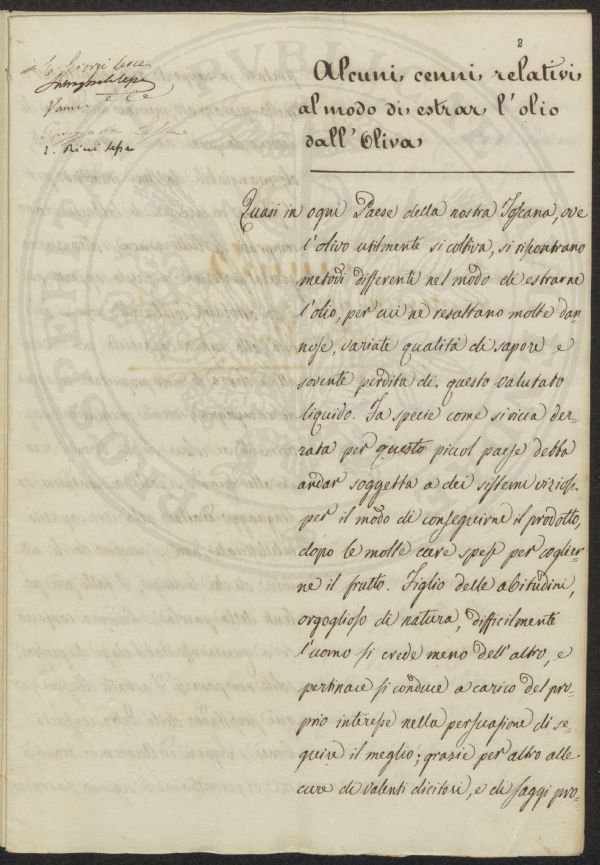 2
Alcuni cenni relativi
al modo di estrar l'olio
dall'Oliva
Quasi in ogni Paese della nostra Toscana, ove
l'olivo utilmente si coltiva, si riscontrano
metodi differenti nel modo di estrarne
l'olio, per cui ne resultano molte dan-
nose, variate qualità di sapore e
sovente perdita di questo valutato
liquido. Fa specie come sì ricca der-
rata per questo piccol paese debba
andar soggetta a dei sistemi viziosi
per il modo di conseguirne il prodotto,
dopo le molte cure spese per coglier-
ne il frutto. Figlio delle abitudini,
orgoglioso di natura, difficilmente
l'uomo si crede meno dell'altro, e
pertinace si conduce a carico del pro-
prio interesse nella persuasione di se-
guire il meglio; grazie per altro alle
cure di valenti dicitori, e di saggi pro-